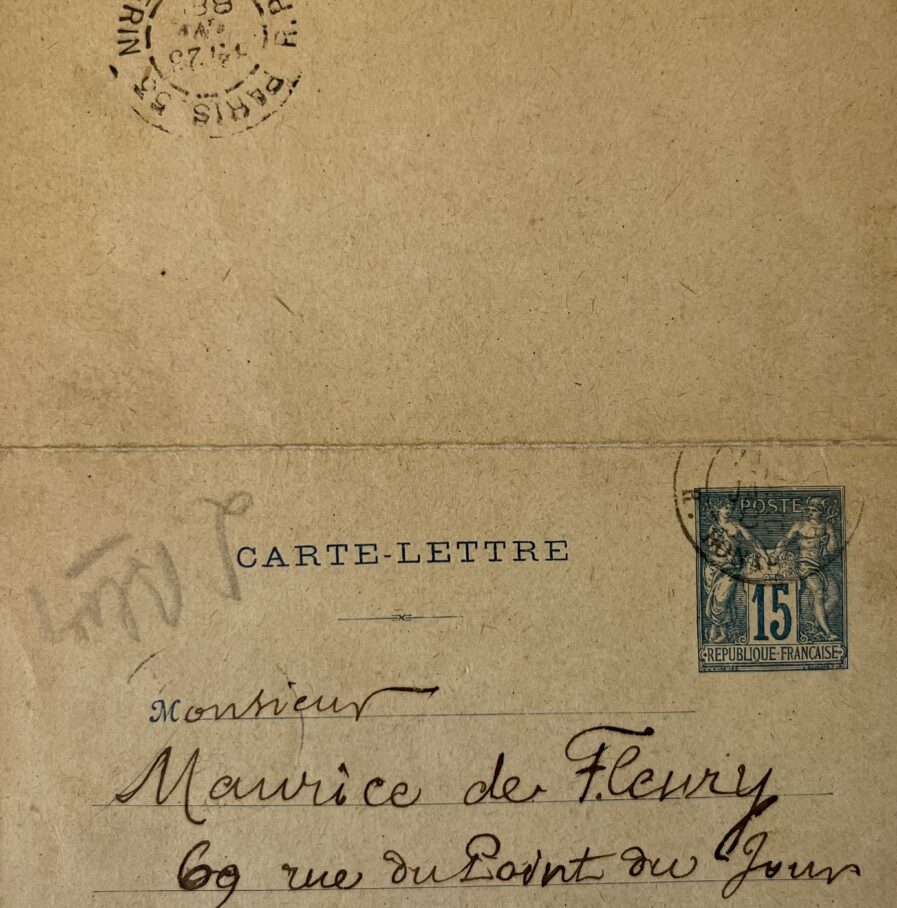 PARIS 53
CARTE-LETTRE
POSTE
15
RÉPUBLIQUE·FRANÇAISE
Monsieur
Maurice de Fleury
69 rue du Point du Jour